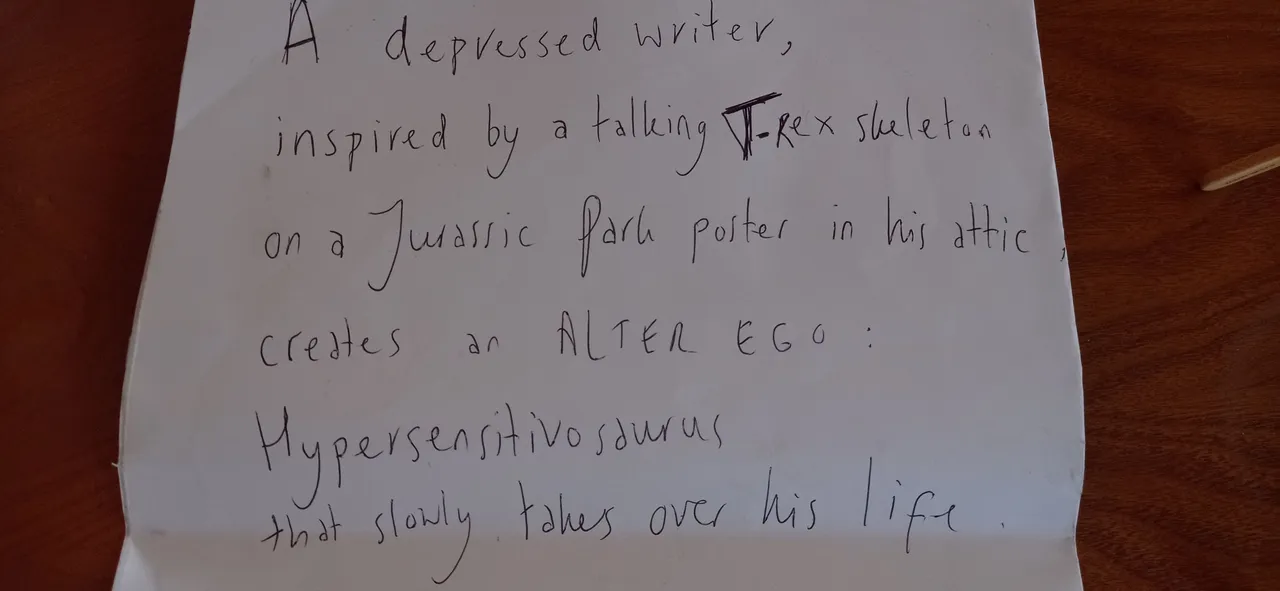 A depressed writer,
inspired by a talking T-Rex skeleton
on a Jurassic Park poster in his attic,
creates an ALTER EGO:
Hypersensitivosaurus
that slowly takes over his life.